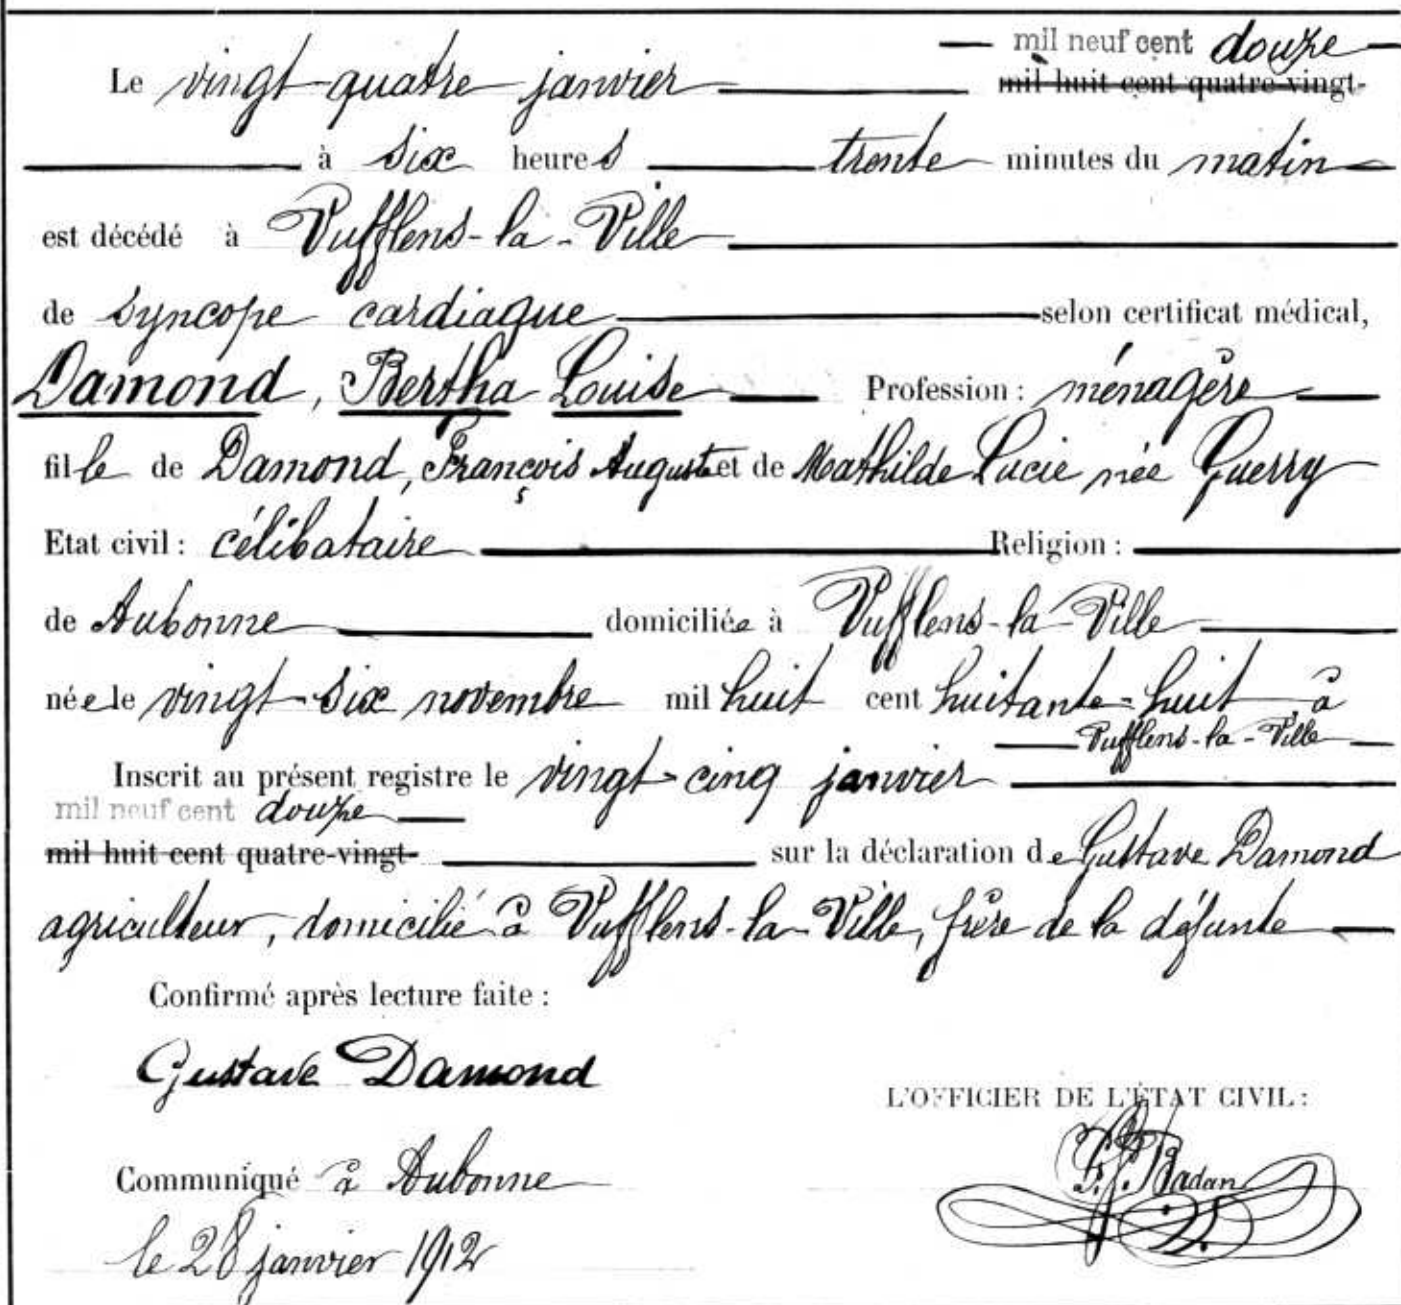 mil neuf cent douze
Le vingt-quatre janvier mil huit cent quatre-vingt-
à six heures trente minutes du matin
est décédé à Vufflens-la-Ville
de syncope cardiaque selon certificat médical,
Damond, Bertha Louise Profession : ménagère
fille de Damond, François Auguste et de Mathilde Lucie née Guerry
Etat civil : célibataire Religion :
de Aubonne domiciliée à Vufflens-la-Ville
née le vingt-six novembre mil huit cent huitante-huit à
Vufflens-la-Ville
Inscrit au présent registre le vingt-cinq janvier
mil neuf cent douze
mil huit cent quatre-vingt- sur la déclaration de Gustave Damond
agriculteur, domicilié à Vufflens-la-Ville, frère de la défunte
Confirmé après lecture faite :
Gustave Damond
L'OFFICIER DE L'ÉTAT CIVIL :
Badan
Communiqué à Aubonne
le 28 janvier 1912